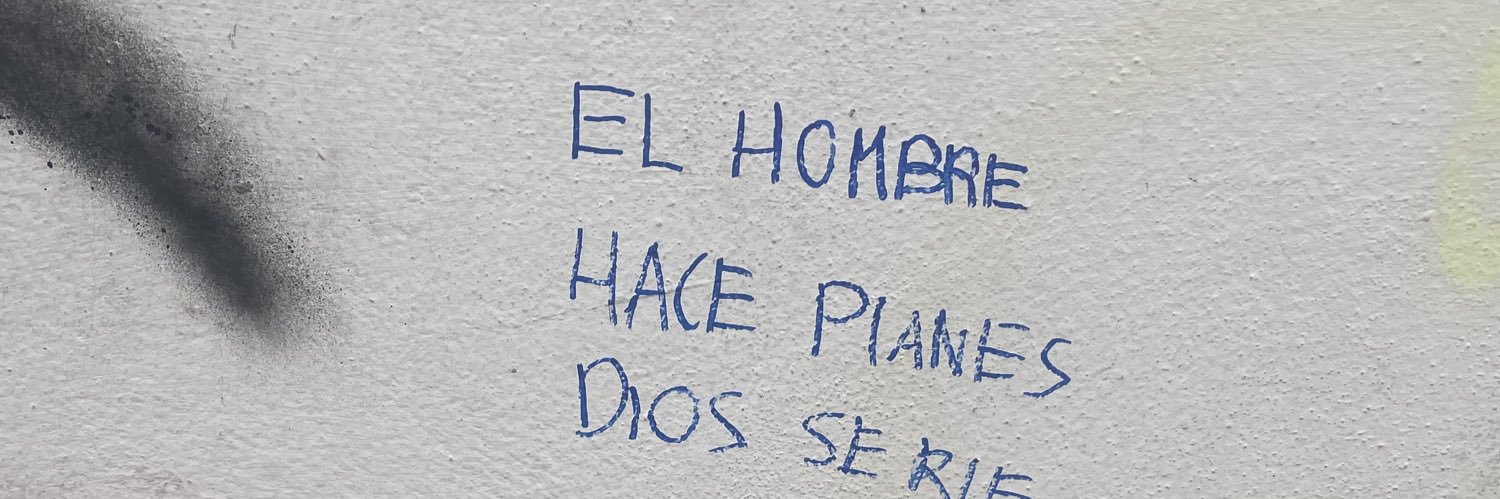 EL HOMBRE
HACE PlANES
DIOS SE RIE